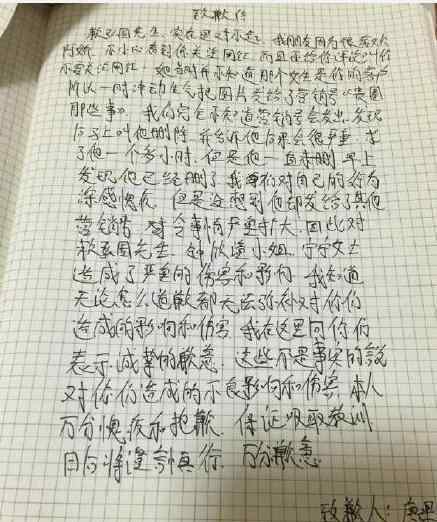 致歉信
先生 实在是对不起 我朋友因为很喜欢
不小心看到你关注网红 而且还给你评论叫你
不要关注网红 她当时并不知道那个女生是你的客户
所以一时冲动生气把图片发给了营销号《贵圈
那些事》 我们完全不知道营销号会发出 发现
后马上叫他删除 并告诉他后果会很严重 求
了他一个多小时 但是他一直未删 早上
发现他已经删了 我对自己的行为
深感愧疚 但是没想到他却发给了其他
营销号 令事情严重扩大 因此对
先生 小姐 女士
造成了严重的伤害和影响 我知道
无论怎么道歉都无法弥补对你们
造成的影响和伤害 我在这里向你们
表示诚挚的歉意 这些不是事实的说
对你们造成的不良影响和伤害 本人
万分愧疚和抱歉 保证吸取教训
日后将谨言慎行 万分歉意
致歉人：